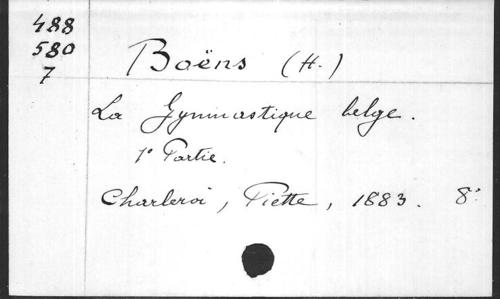 488
580
7
Boëns (H.)
La Gymnastique belge.
1º Partie.
Charleroi, Piette, 1883. 8º